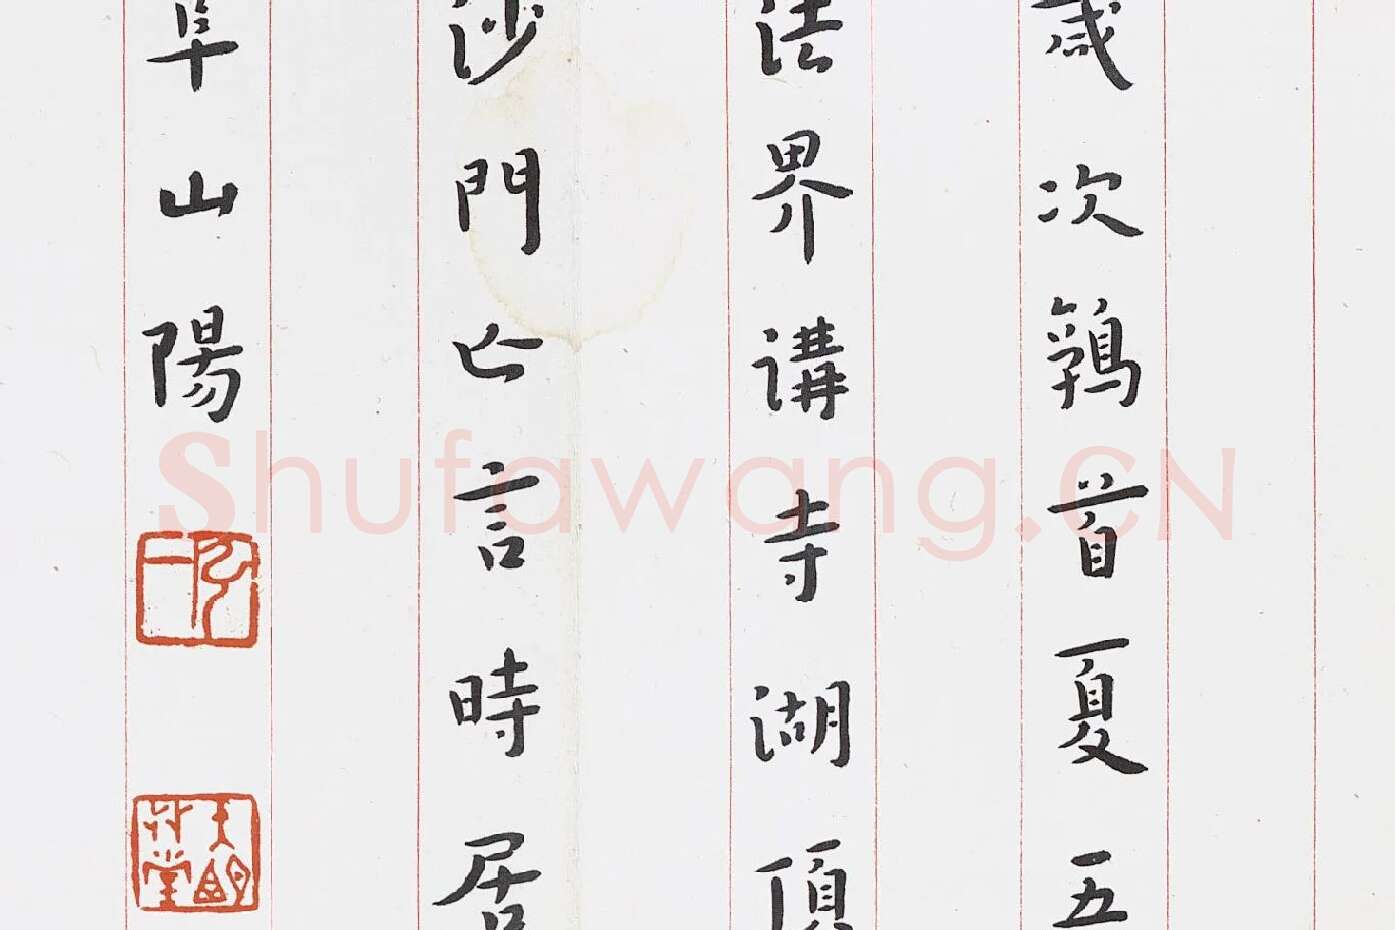 歲次鶉首夏五
法界講寺湖頂
沙門亡言時居
阜山陽
Shufawang.CN
弘一